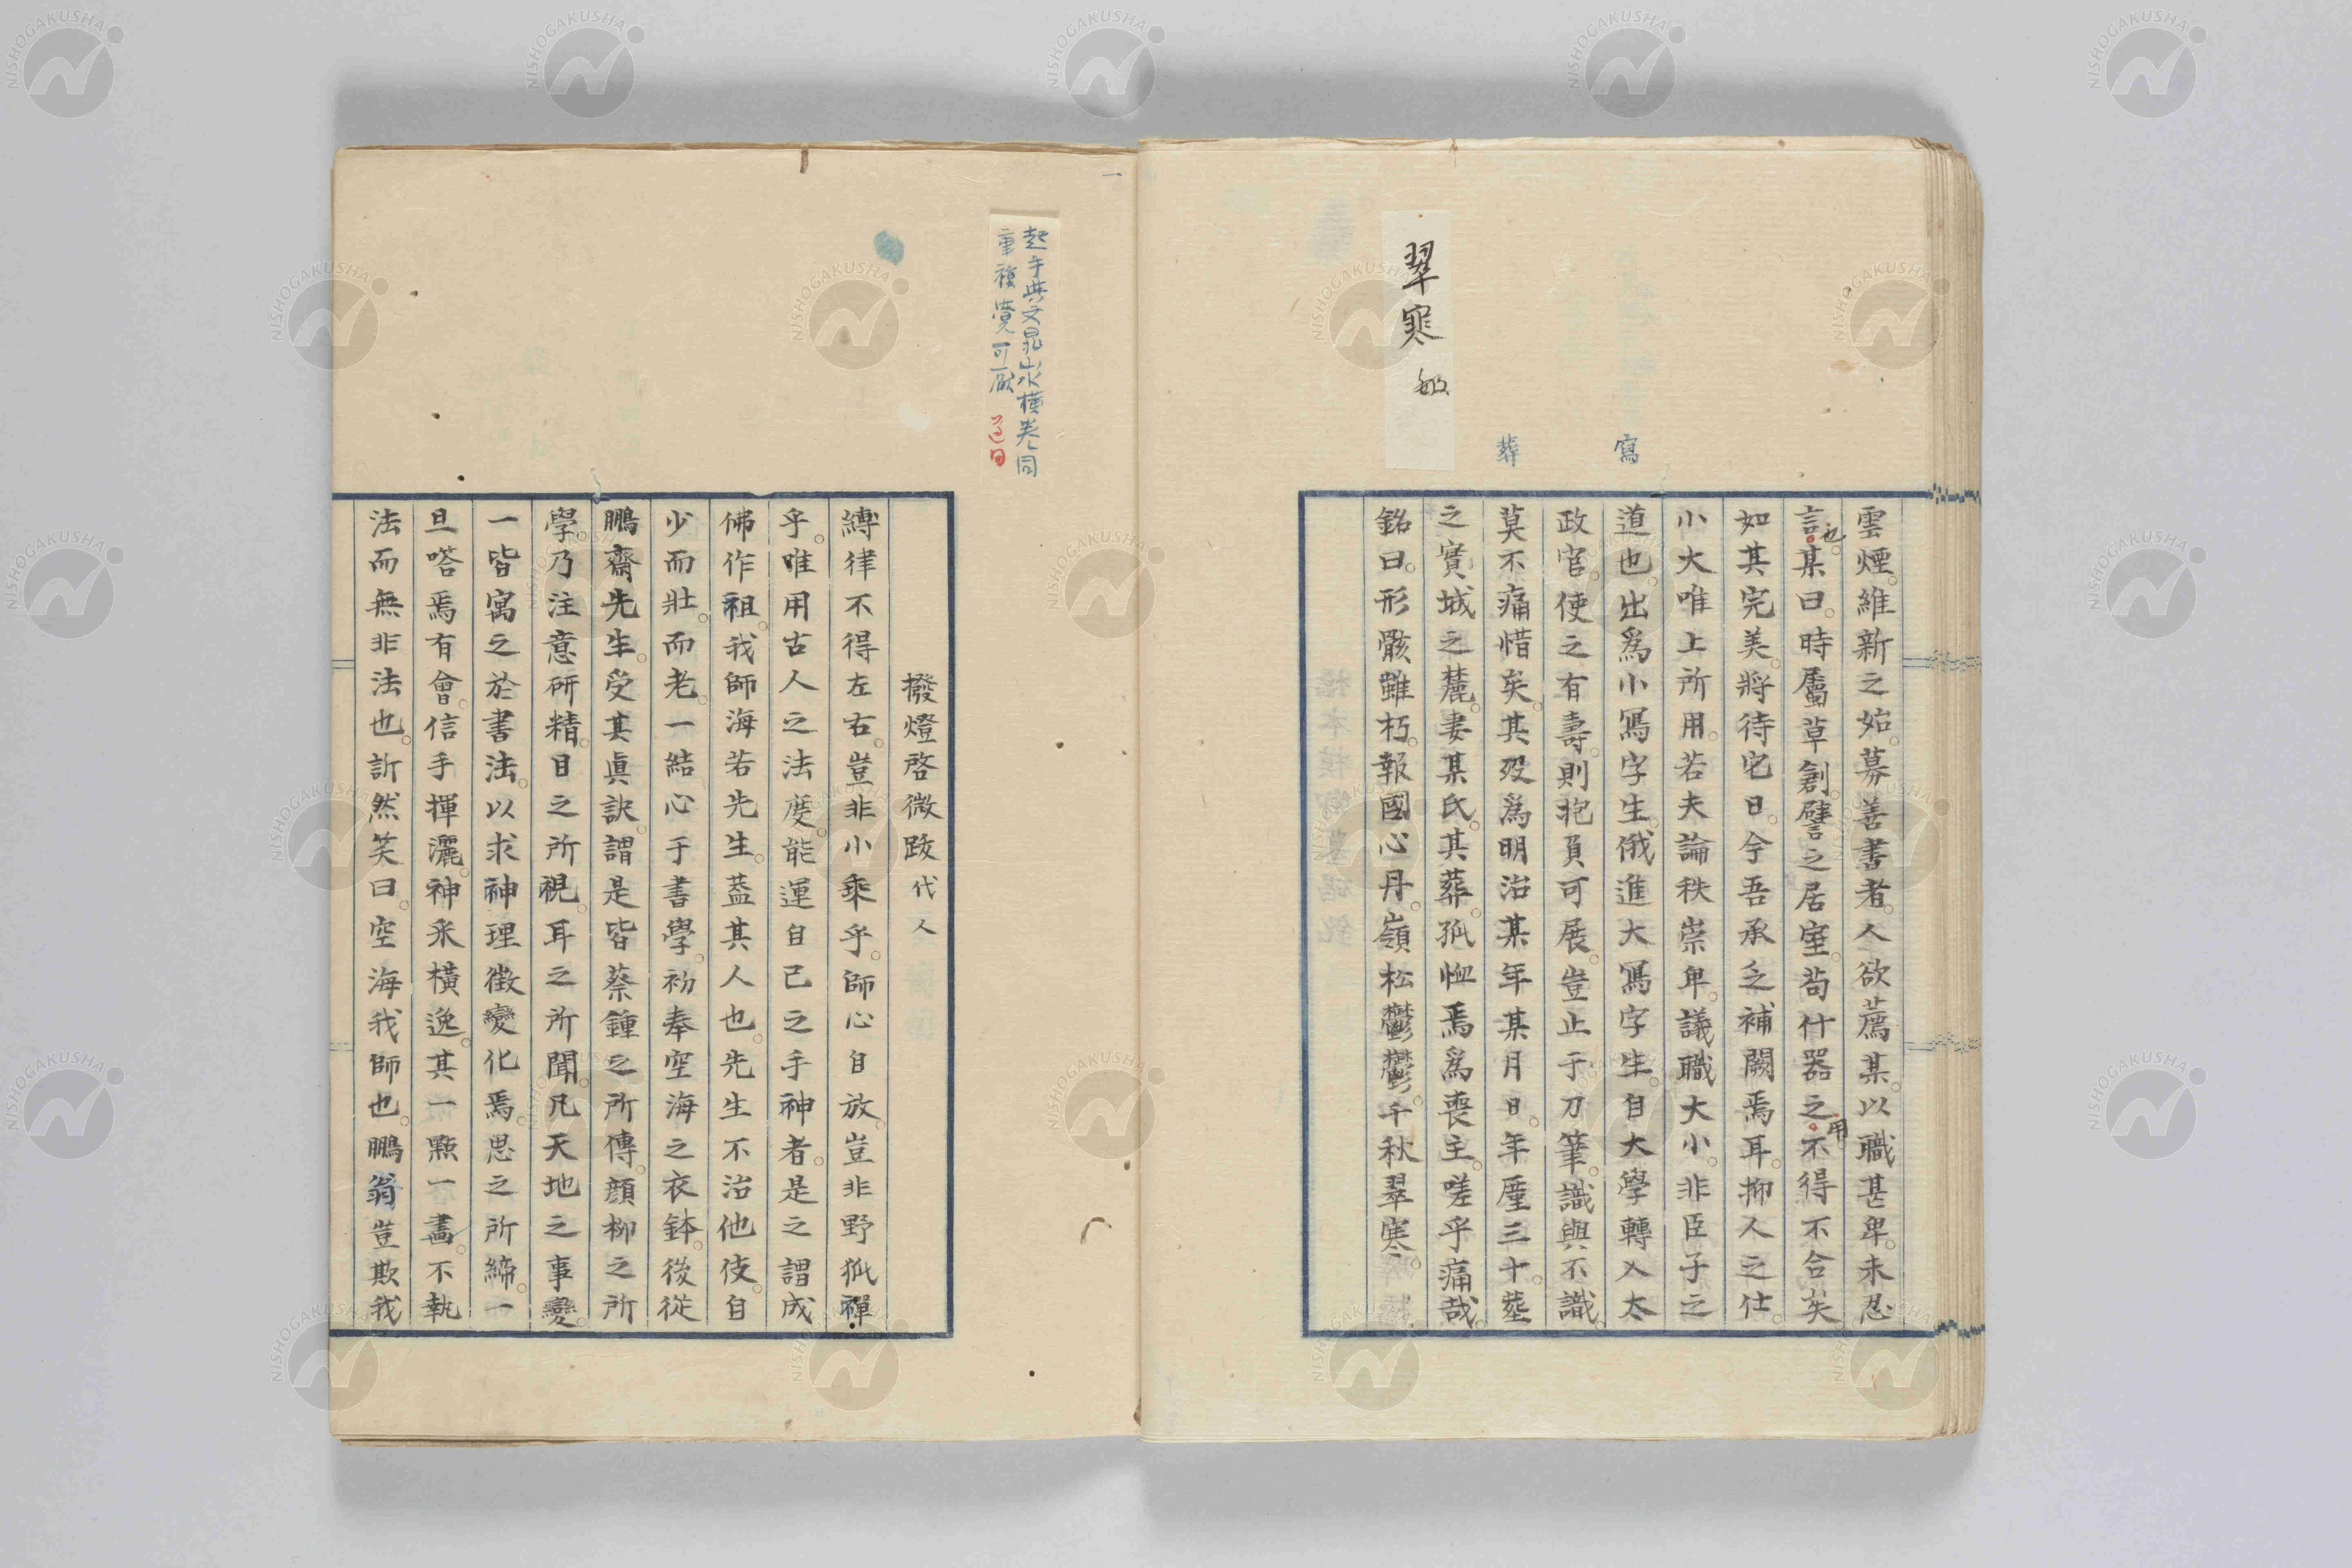 翠寒 敏
寫
葬
雲煙。維新之始。募善書者。人欲薦某。以職甚卑。未忍
言也。某曰。時屬草創。譬之居室。茍什器之用。不得不合矣
如其完美。將待它日。今吾承乏補闕焉耳。抑人之仕。
小大唯上所用。若夫論秩崇卑。議職大小。非臣子之
道也。出爲小寫字生。俄進大寫字生。自大學轉入太
政官。使之有壽。則抱負可展。豈止于刀筆。識與不識。
莫不痛惜矣。其歿爲明治某年某月日。年廑三十。塟
之實城之麓。妻某氏。其葬。孤恤焉爲喪主。嗟乎痛哉。
銘曰。形骸雖朽。報國心丹。嶺松鬱鬱。千秋翠寒。
起手與文晁山水橫卷同
重複覺可厭
撥燈啓微跋 代人
縛律不得左右。豈非小乘乎。師心自放。豈非野狐禪
乎。唯用古人之法度。能運自己之手神者。是之謂成
佛作祖。我師海若先生。葢其人也。先生不治他伎。自
少而壯。而老。一結心于書學。初奉空海之衣鉢。後從
鵬齋先生。受其眞訣。謂是皆蔡鍾之所傳。顏柳之所
學。乃注意研精。目之所視。耳之所聞。凡天地之事變。
一皆寓之於書法。以求神理微變化焉。思之所締。一
旦嗒焉有會。信手揮灑。神采橫逸。其一點一畫。不執
法而無非法也。訢然笑曰。空海我師也。鵬翁豈欺我